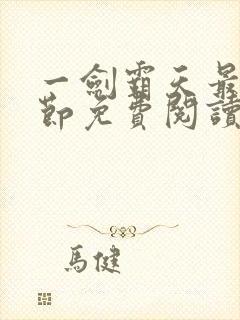 一劍霸天最
節免費閱讀
馬健